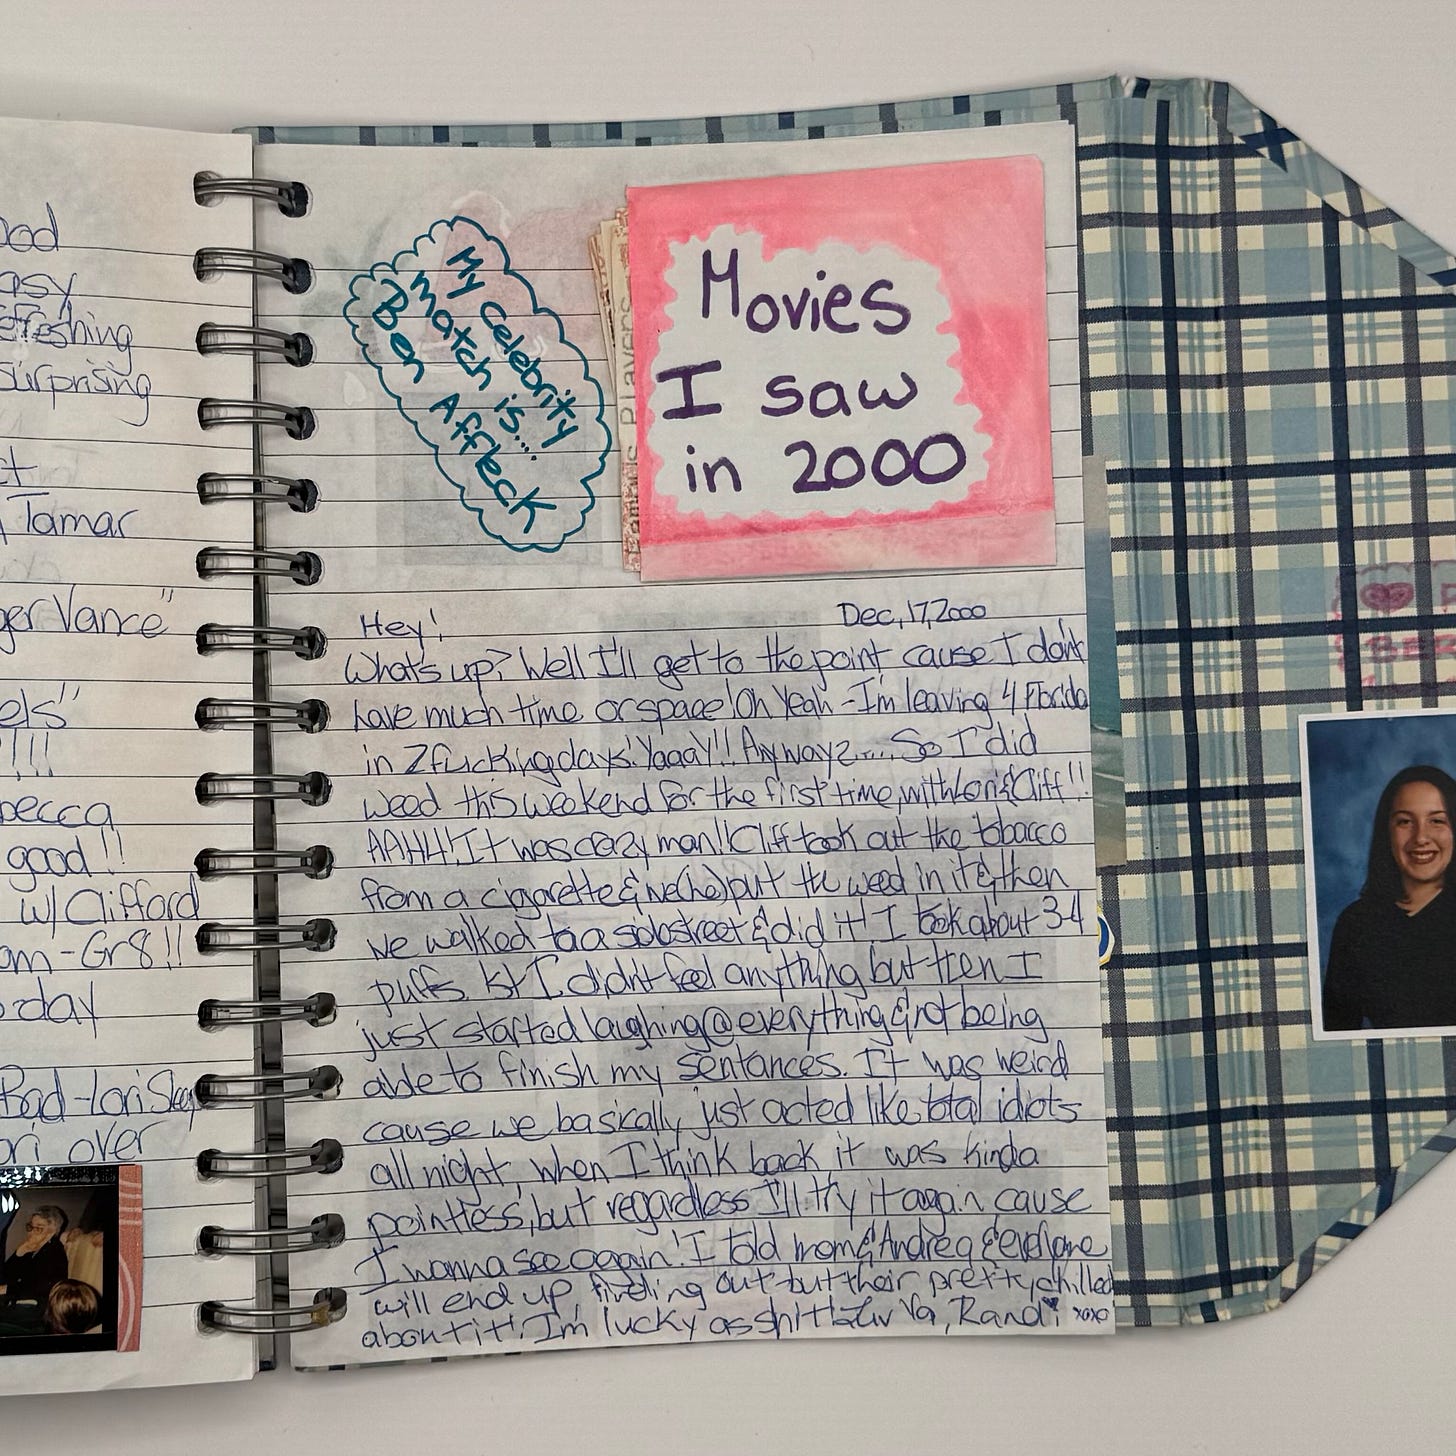 ood
asy
efreshing
surprising
ct
Tamar
ger Vance"
els"
!!!
becca
good!!
w/ Clifford
am - Gr8!!
day
Bad - Lori Sleep
ori over
My celebrity
match is...
Ben Affleck
Movies
I saw
in 2000
Players
Hey! Dec, 17, 2000
What's up? Well I'll get to the point cause I don't
have much time or space! Oh Yeah - I'm leaving 4 Florida
in 2 fucking days! Yaaay!! Anywayz.... So I did
weed this weekend for the first time, with Lori & Cliff!!
AAHH! It was crazy man!! Cliff took out the tobacco
from a cigarette & we (he) put the weed in it & then
we walked to a sidestreet & did it! I took about 3-4
puffs. 1st I didn't feel anything but then I
just started laughing @ everything & not being
able to finish my sentances. It was weird
cause we basically just acted like total idiots
all night, when I think back it was kinda
pointless, but regardless I'll try it again cause
I wanna see again! I told mom & Andrea & everyone
will end up finding out but their pretty chilled
about it! I'm lucky as shit! Luv Ya, Randi xoxo